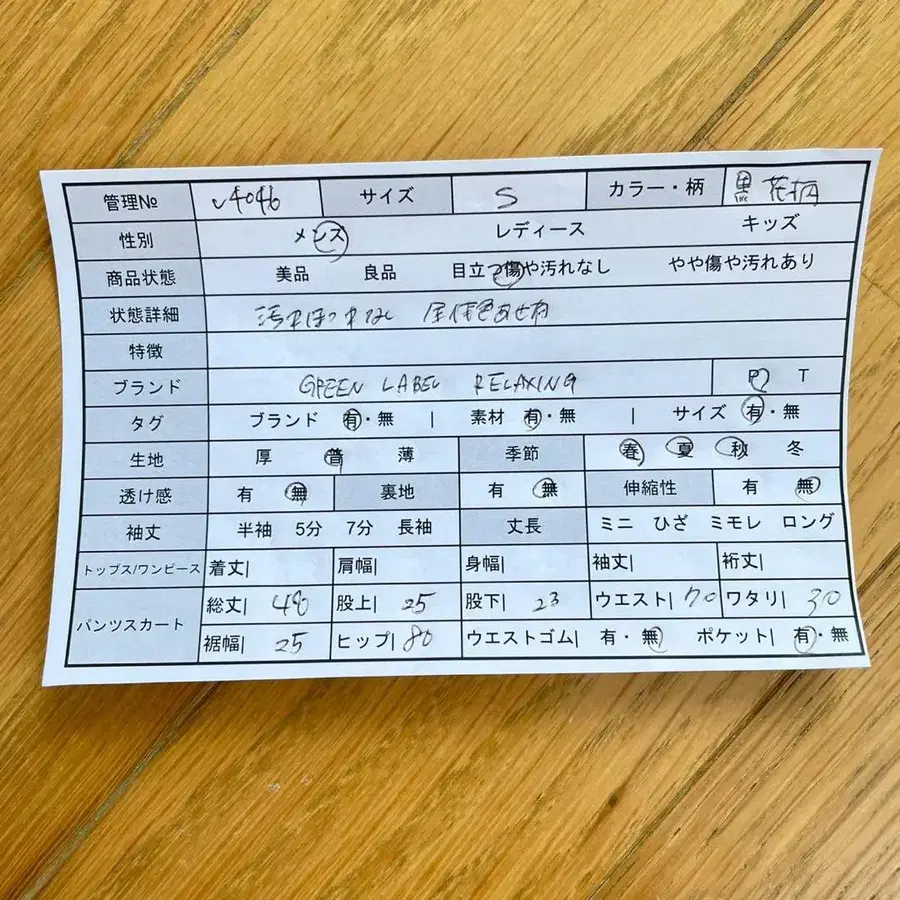 管理№ v4046 サイズ S カラー・柄 黒 花柄
性別 メンズ レディース キッズ
商品状態 美品 良品 目立つ傷や汚れなし やや傷や汚れあり
状態詳細 汚れほつれなし 全体色あせ有
特徴
ブランド GREEN LABEL RELAXING P T
タグ ブランド 有・無 | 素材 有・無 | サイズ 有・無
生地 厚 普 薄 季節 春 夏 秋 冬
透け感 有 無 裏地 有 無 伸縮性 有 無
袖丈 半袖 5分 7分 長袖 丈長 ミニ ひざ ミモレ ロング
トップス/ワンピース 着丈| 肩幅| 身幅| 袖丈| 裄丈|
パンツスカート 総丈| 48 股上| 25 股下| 23 ウエスト| 70 ワタリ| 30
裾幅| 25 ヒップ| 80 ウエストゴム| 有・無 ポケット| 有・無